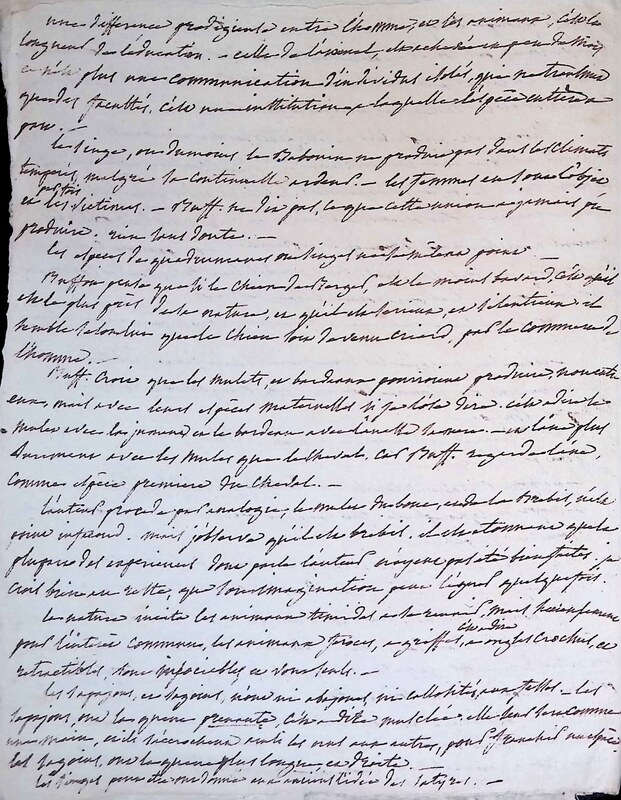 une difference prodigieuse entre l'homme, et les animaux, c'est la
longueur de l'éducation. — celle de l'animal, est achevée en peu de mois
ce n'est plus une communication d'individus isolés, qui ne transmet
que des facultés, c'est une institution a laquelle l'espèce entière a
part. —
le singe, ou du moins le Babouin ne produit pas dans les climats
temperés, malgré sa continuelle ardeur. — les femmes en sont l'objet
et les victimes. — Buff. ne dit pas, ce que cette union a jamais pu
produire, rien sans doute. —
les especes de quadrumanes ou singes ne se mêlent point —
Buffon pense que si le chien de Berger, est le moins bavard, c'est qu'il
est le plus près de la nature, et qu'il est serieux, et silentieux. il
semble selon lui que le chien soit devenu criard, par le commerce de
l'homme. —
Buff. Croit que les mulets, et bardeaux pourroient produire, non entre
eux, mais avec leurs espèces maternelles si je l'ose dire. c'est a dire le
mulet avec la jument et le bardeau avec l'ânesse — et l'âne plus
surement avec les mules que le cheval. Car Buff. regarde l'âne,
comme espèce premiere du cheval. —
l'auteur procede par analogie, le mulet du bouc, et de la Brebis, n'est
point infecond. mais j'observe qu'il est brebis. il est etonnant que la
plupart des experiences dont parle l'auteur n'ayent pas été bien faites, je
crois bien au reste, que son imagination peut l'égarer quelquefois.
la nature invite les animaux timides a se reunir, mais
pour l'intérêt commun, les animaux feroces, a griffes, c'est a dire a ongles crochus, et
retractibles, sont insociables et vont seuls. —
les sapajous, et sagouins, n'ont ni abajoues, ni callosités, aux fesses — les
sapajous, ont la queue prenante, c'est a dire musclée. elle leur sert comme
une main, et ils s'accrochent ainsi les uns aux autres, pour
les sagouins, ont la queue plus longue et droite.
les singes peuvent avoir donné aux anciens l'idée des satyres. —